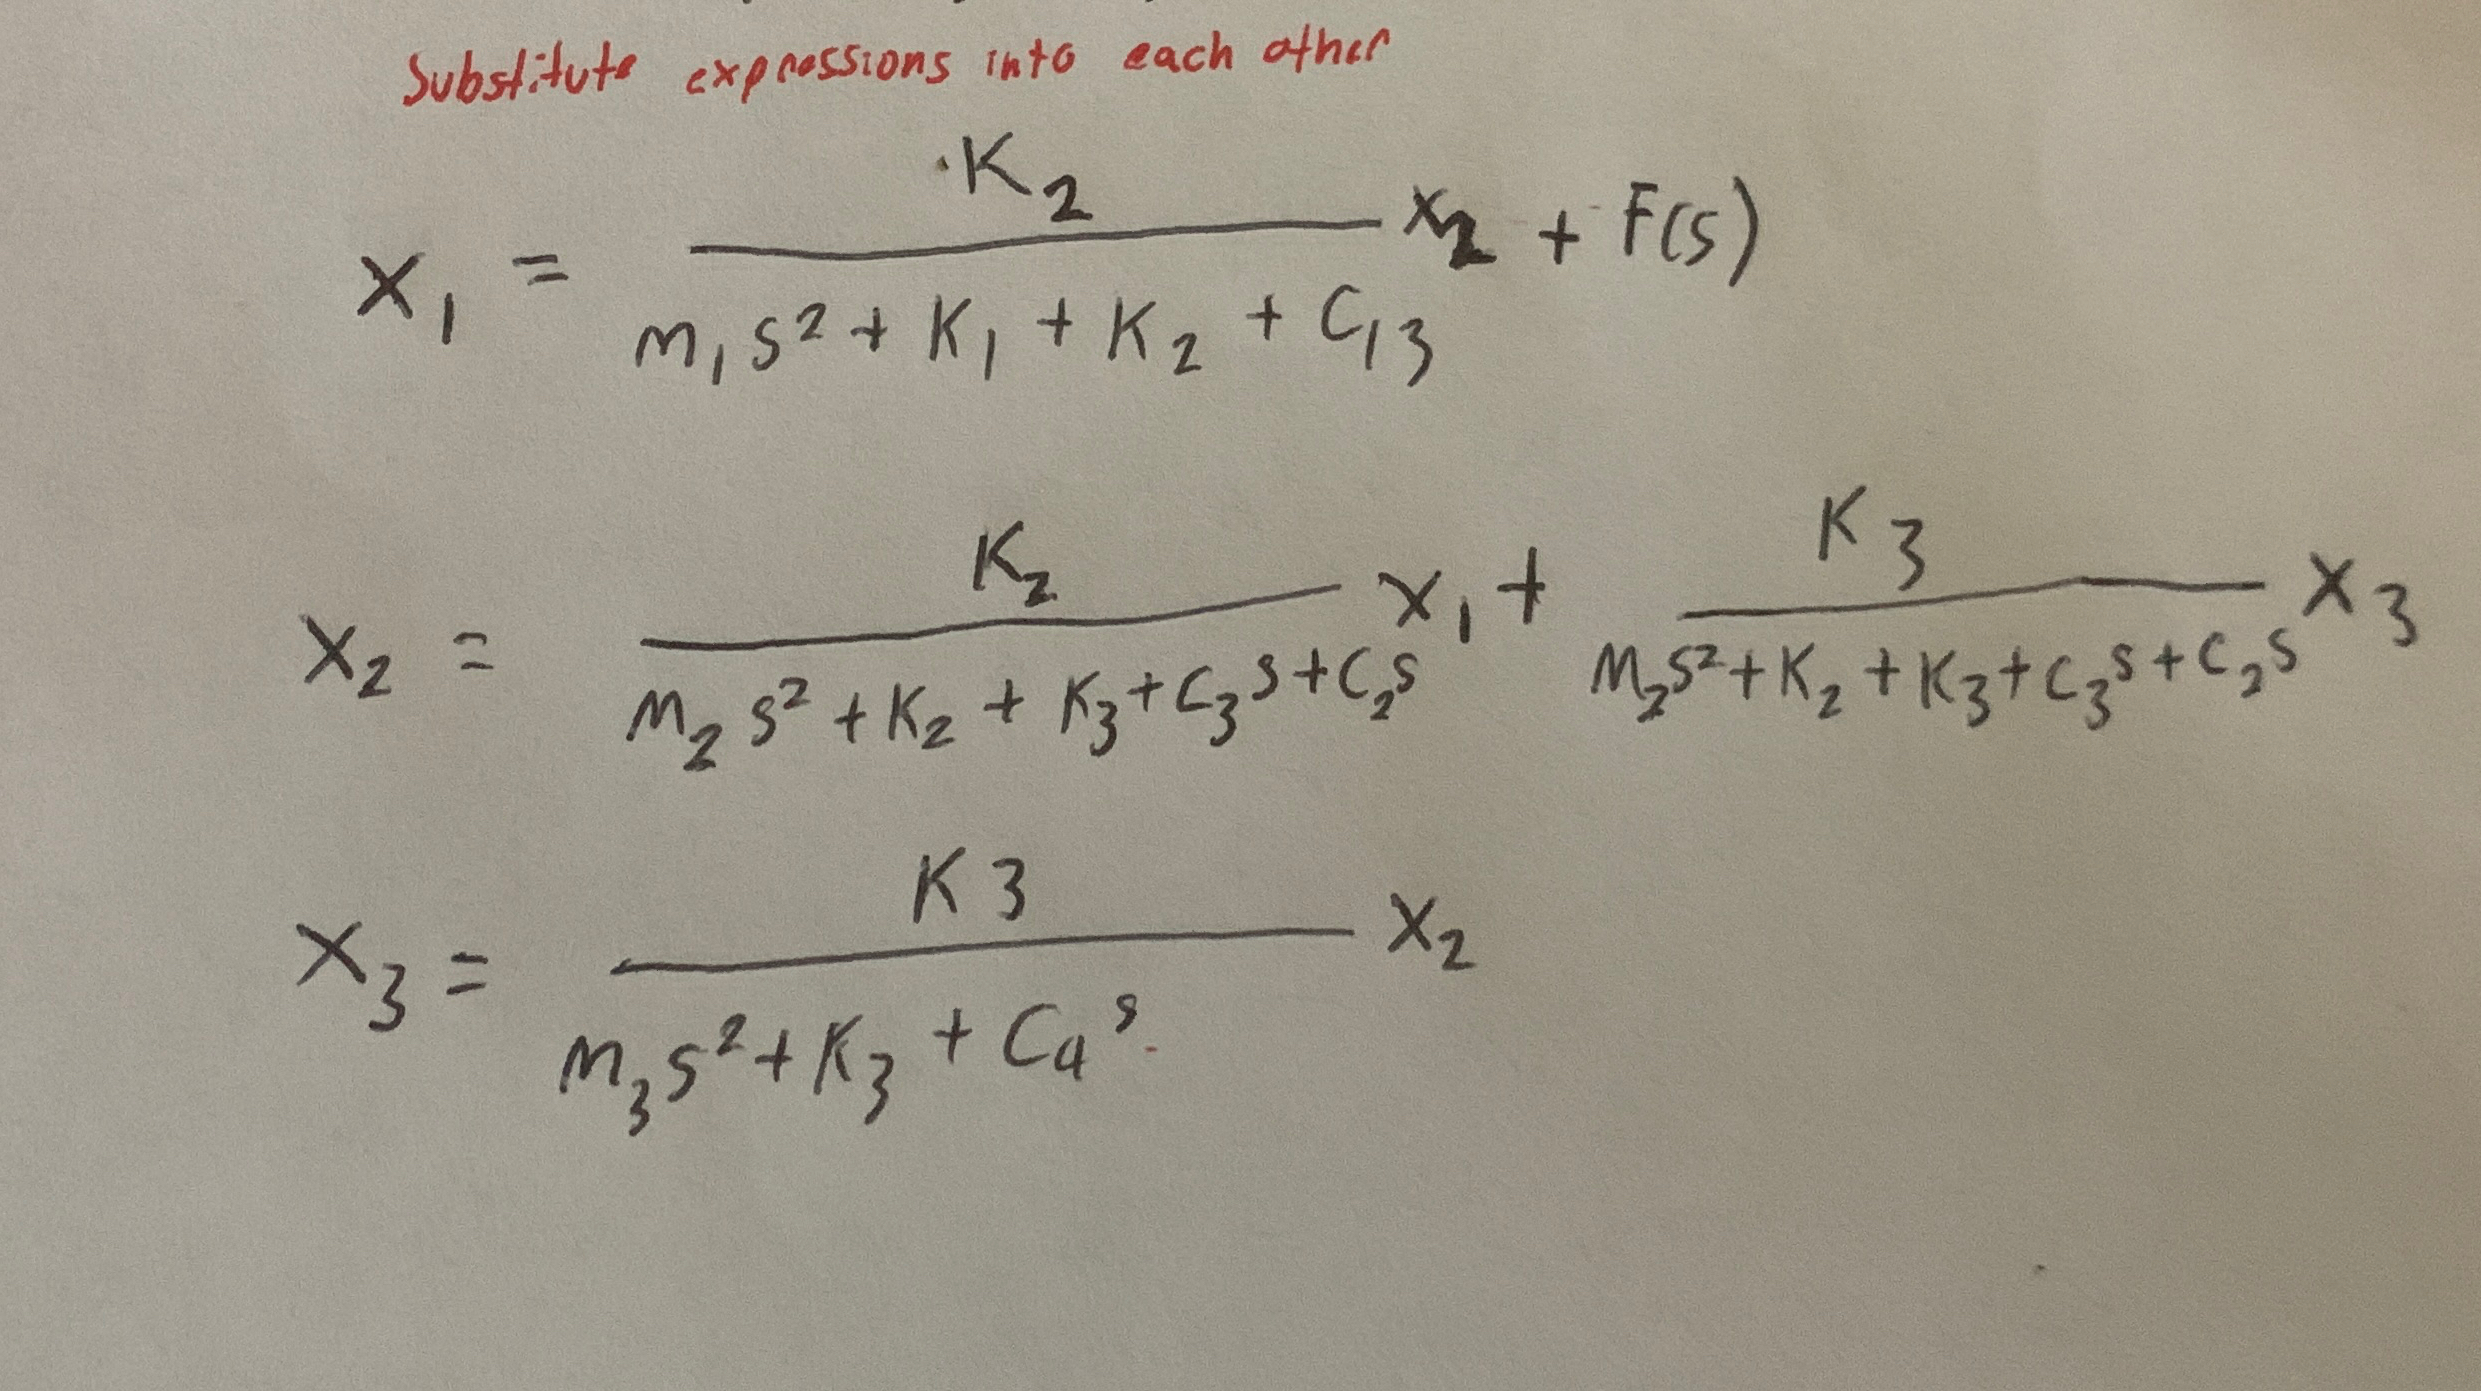 Substitute expressions into each other
K2
X1 = ——— X2 + F(s)
m1s² + K1 + K2 + C13
K2 K3
X2 = ——— X1 + ——— X3
m2s² + K2 + K3 + C3s + C2s M2s² + K2 + K3 + C3s + C2s
K3
X3 = ——— X2
m3s² + K3 + C4s